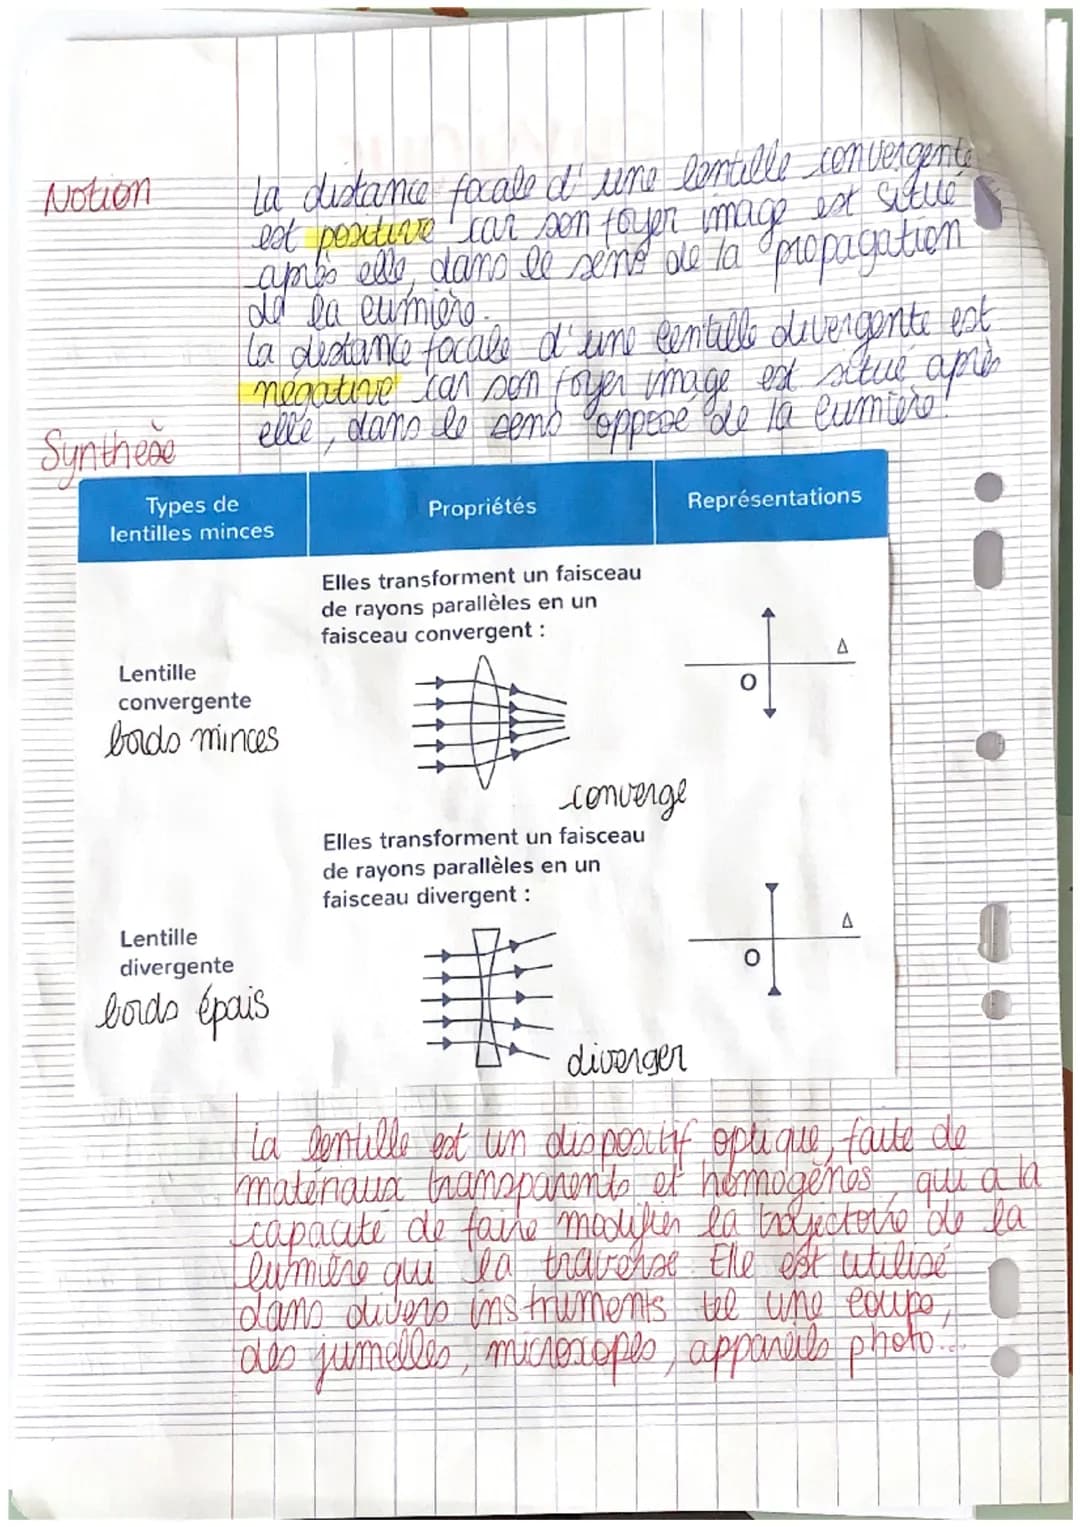 Notion
La distance focale d'une lentille convergente
est positive car son foyer image est situé
après elle, dans le sens de la propagation
de la lumière.
La distance focale d'une lentille divergente est
negative car son foyer image est situé après
elle, dans le sens oppose de la lumière!
Synthèse
Types de
lentilles minces
Propriétés
Représentations
Elles transforment un faisceau
de rayons parallèles en un
faisceau convergent :
Lentille
convergente
bords minces
Δ
O
converge
Elles transforment un faisceau
de rayons parallèles en un
faisceau divergent :
Lentille
divergente
bords épais
Δ
O
diverger
La lentille est un dispositif optique, faite de
matériaux transparents et homogènes, qui a la
capacité de faire modifier la trajectoire de la
lumière qui la traverse. Elle est utilisé
dans divers instruments tel une loupe,
des jumelles, microscopes, appareils photo...